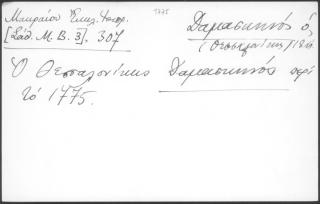 Μακραίου Ἐκκλ. Ἱστορ. 1775
[Σάθ. Μ. Β. 3]. 307
Δαμασκηνός ὁ,
(Θεσσαλονίκης) 18
Ὁ Θεσσαλονίκης Δαμασκηνός περί
τό 1775.